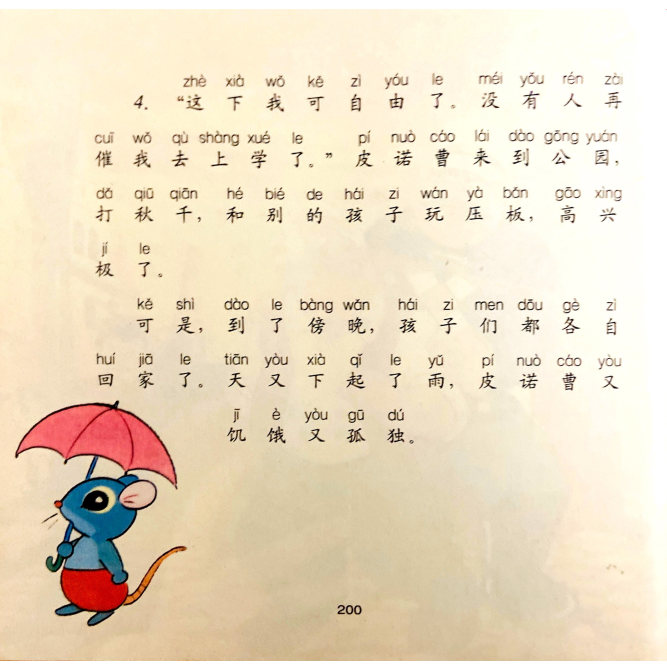 zhè xià wǒ kě zì yóu le méi yǒu rén zài
4. “这下我可自由了。没有人再
cuī wǒ qù shàng xué le pí nuò cáo lái dào gōng yuán
催我去上学了。”皮诺曹来到公园，
dǎ qiū qiān hé bié de hái zi wán yà bǎn gāo xìng
打秋千，和别的孩子玩压板，高兴
jí le
极了。
kě shì dào le bàng wǎn hái zi men dōu gè zì
可是，到了傍晚，孩子们都各自
huí jiā le tiān yòu xià qǐ le yǔ pí nuò cáo yòu
回家了。天又下起了雨，皮诺曹又
jī è yòu gū dú
饥饿又孤独。
200